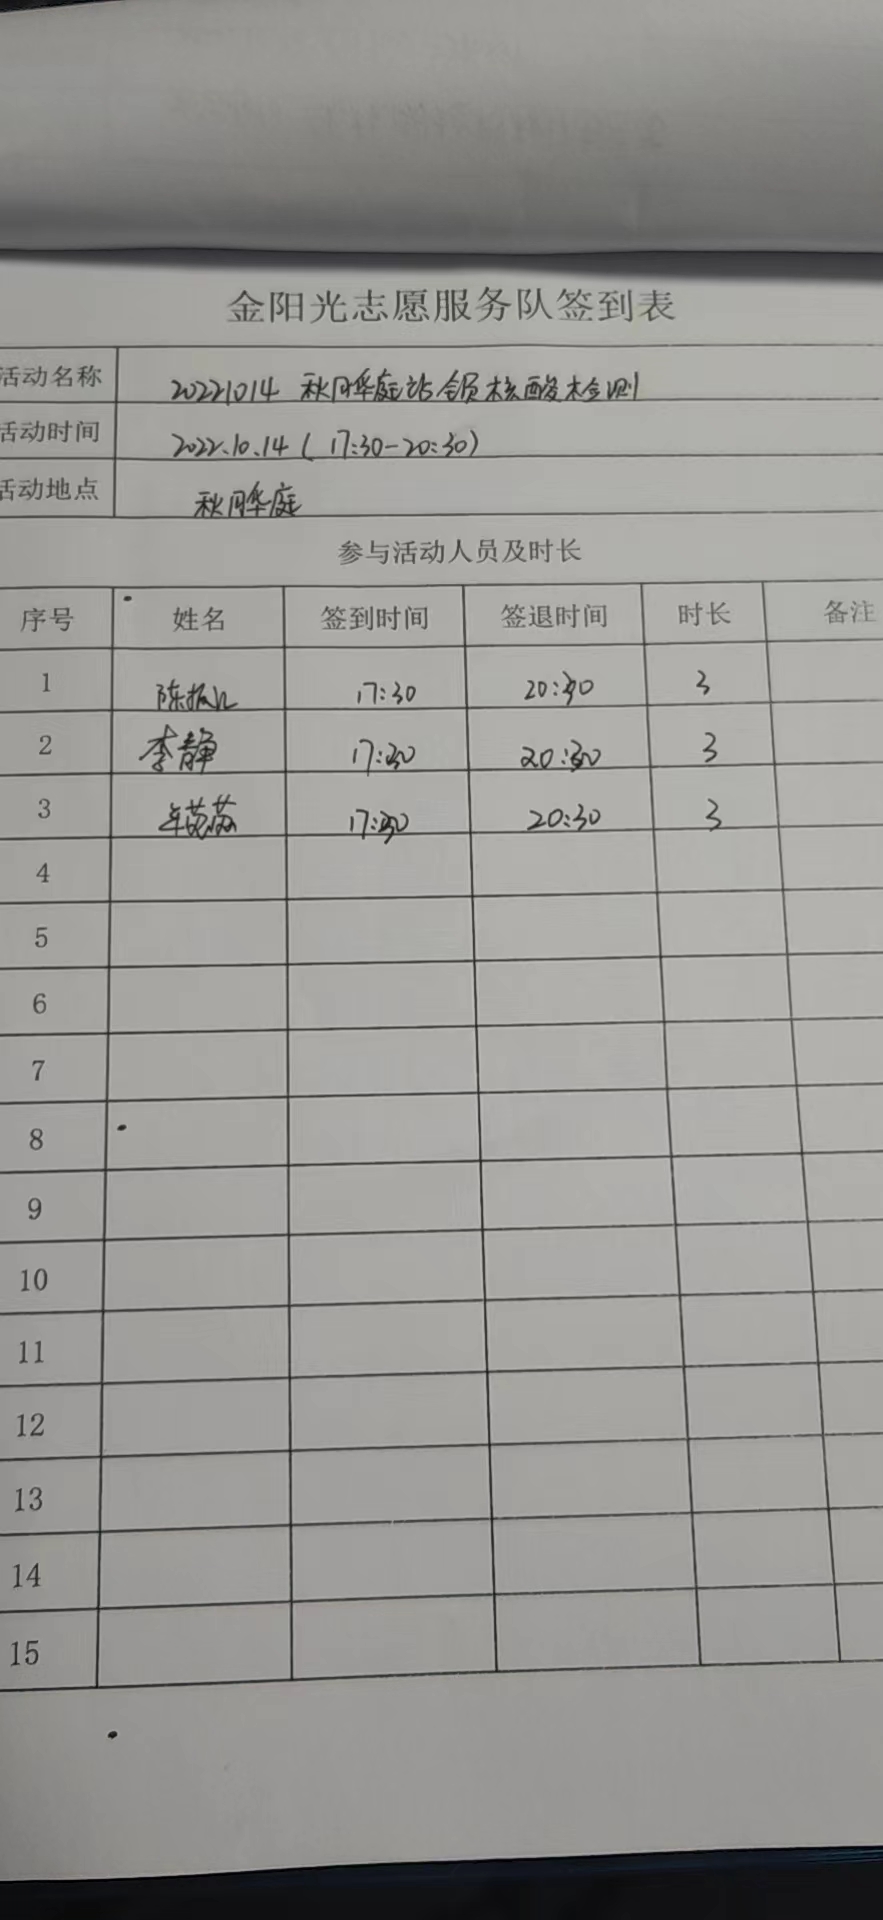 金阳光志愿服务队签到表
活动名称 20221014 秋月华庭站全员核酸检测
活动时间 2022.10.14(17:30-20:30)
活动地点 秋月华庭
参与活动人员及时长
序号 姓名 签到时间 签退时间 时长 备注
1 陈振 17:30 20:30 3
2 李静 17:30 20:30 3
3 17:30 20:30 3
4
5
6
7
8
9
10
11
12
13
14
15